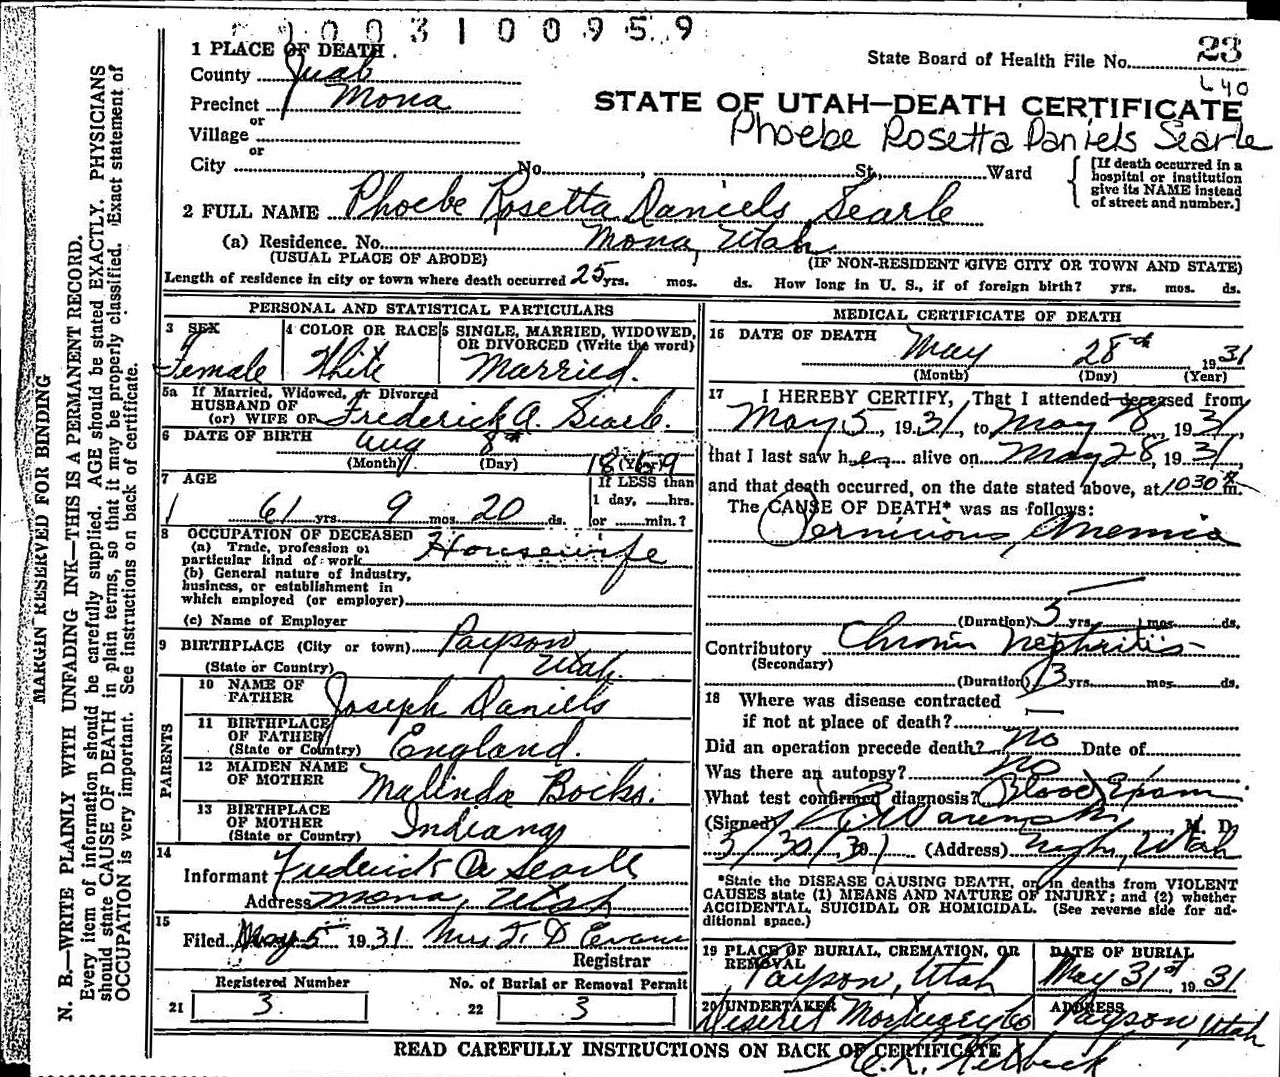 1003100959
1 PLACE OF DEATH
State Board of Health File No. 23
County Juab
640
Precinct Mona
STATE OF UTAH—DEATH CERTIFICATE
or
Phoebe Rosetta Daniels Searle
Village
or
City No. , St., Ward
[If death occurred in a
hospital or institution
give its NAME instead
of street and number.]
2 FULL NAME Phoebe Rosetta Daniels Searle
(a) Residence. No. Mona, Utah
(USUAL PLACE OF ABODE) (IF NON-RESIDENT GIVE CITY OR TOWN AND STATE)
Length of residence in city or town where death occurred 25 yrs. mos. ds. How long in U. S., if of foreign birth? yrs. mos. ds.
PERSONAL AND STATISTICAL PARTICULARS
3 SEX
Female
4 COLOR OR RACE
White
5 SINGLE, MARRIED, WIDOWED,
OR DIVORCED (Write the word)
Married.
5a If Married, Widowed, or Divorced
HUSBAND OF
(or) WIFE OF Frederick A. Searle.
6 DATE OF BIRTH Aug 8th 1869
(Month) (Day) (Year)
7 AGE
61 yrs. 9 mos. 20 ds.
If LESS than
1 day, ......hrs.
or ......min.?
8 OCCUPATION OF DECEASED
(a) Trade, profession or
particular kind of work Housewife
(b) General nature of industry,
business, or establishment in
which employed (or employer)
(c) Name of Employer
9 BIRTHPLACE (City or town) Payson
(State or Country) Utah.
PARENTS
10 NAME OF
FATHER Joseph Daniels
11 BIRTHPLACE
OF FATHER
(State or Country) England.
12 MAIDEN NAME
OF MOTHER Malinda Bocks.
13 BIRTHPLACE
OF MOTHER
(State or Country) Indiana
14
Informant Frederick A Searle
Address Mona, Utah
15
Filed May 5 1931 Mrs T. D Evans
Registrar
Registered Number No. of Burial or Removal Permit
21 3 22 3
MEDICAL CERTIFICATE OF DEATH
16 DATE OF DEATH May 28th 1931
(Month) (Day) (Year)
17 I HEREBY CERTIFY, That I attended deceased from
May 5, 1931, to May 8, 1931,
that I last saw her alive on May 28, 1931,
and that death occurred, on the date stated above, at 1030 m.
The CAUSE OF DEATH* was as follows:
Pernicious Anemia
(Duration) 5 yrs. mos. ds.
Contributory Chronic Nephritis
(Secondary)
(Duration) 3 yrs. mos. ds.
18 Where was disease contracted
if not at place of death? —
Did an operation precede death? no Date of
Was there an autopsy? no
What test confirmed diagnosis? Blood Exam
(Signed) M. D.
5/30/31 (Address) Nephi, Utah
*State the DISEASE CAUSING DEATH, or, in deaths from VIOLENT
CAUSES state (1) MEANS AND NATURE OF INJURY; and (2) whether
ACCIDENTAL, SUICIDAL OR HOMICIDAL. (See reverse side for ad-
ditional space.)
19 PLACE OF BURIAL, CREMATION, OR
REMOVAL
Payson, Utah
DATE OF BURIAL
May 31st, 1931
20 UNDERTAKER
Deseret Mortuary Co
ADDRESS
Payson, Utah
READ CAREFULLY INSTRUCTIONS ON BACK OF CERTIFICATE
MARGIN RESERVED FOR BINDING
N. B.—WRITE PLAINLY WITH UNFADING INK—THIS IS A PERMANENT RECORD.
Every item of information should be carefully supplied. AGE should be stated EXACTLY. PHYSICIANS
should state CAUSE OF DEATH in plain terms, so that it may be properly classified. Exact statement of
OCCUPATION is very important. See instructions on back of certificate.